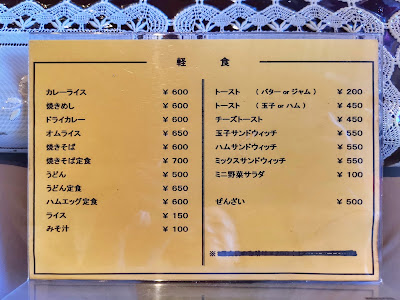 軽 食
カレーライス ¥ 600
焼きめし ¥ 600
ドライカレー ¥ 600
オムライス ¥ 650
焼きそば ¥ 600
焼きそば定食 ¥ 700
うどん ¥ 500
うどん定食 ¥ 650
ハムエッグ定食 ¥ 600
ライス ¥ 150
みそ汁 ¥ 100
トースト (バター or ジャム) ¥ 200
トースト (玉子 or ハム) ¥ 450
チーズトースト ¥ 450
玉子サンドウィッチ ¥ 550
ハムサンドウィッチ ¥ 550
ミックスサンドウィッチ ¥ 550
ミニ野菜サラダ ¥ 100
ぜんざい ¥ 500
※